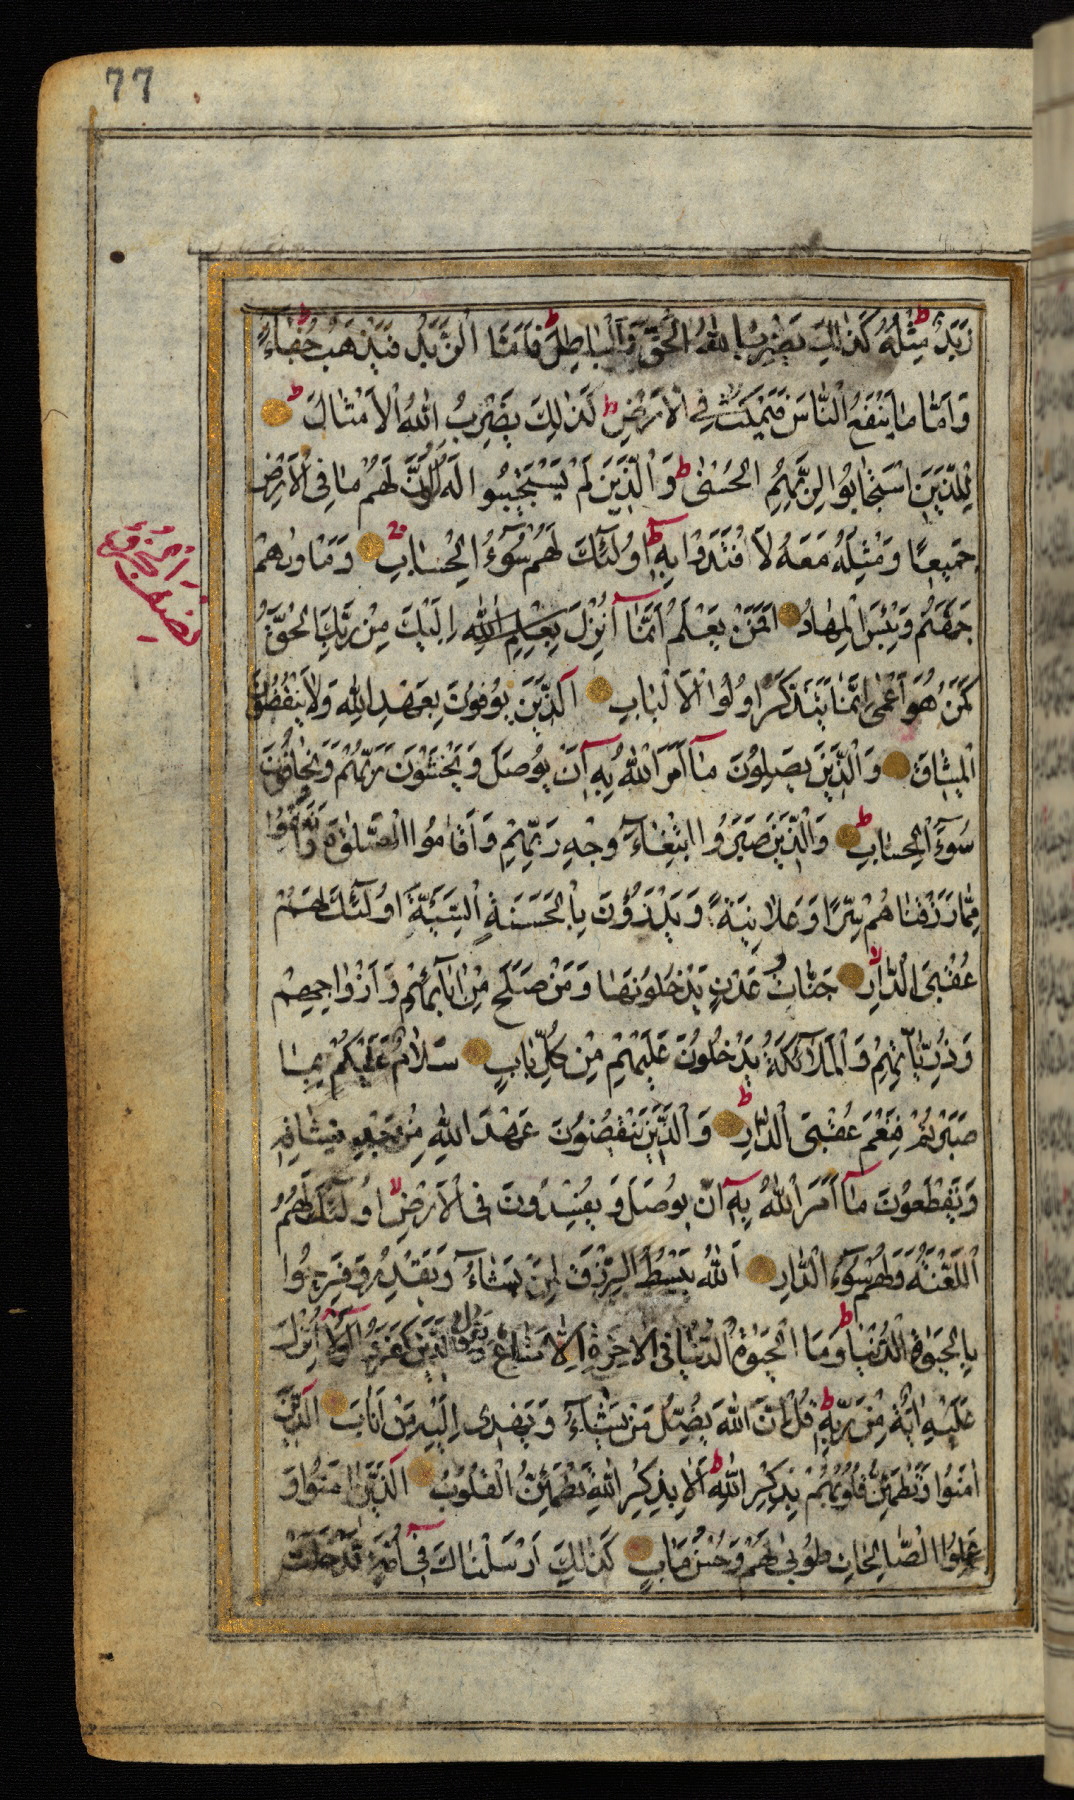 77
زَبَدٌ مِثْلُهُ كَذٰلِكَ يَضْرِبُ اللهُ الْحَقَّ وَالْبَاطِلَ ط فَاَمَّا الزَّبَدُ فَيَذْهَبُ جُفَآءً ط
وَاَمَّا مٰا يَنْفَعُ النّٰاسَ فَيَمْكُثُ فِي الْاَرْضِ ط كَذٰلِكَ يَضْرِبُ اللهُ الْاَمْثٰالَ ط
لِلَّذِينَ اسْتَجٰابُوا لِرَبِّهِمِ الْحُسْنٰى ط وَالَّذِينَ لَمْ يَسْتَجِيبُوا لَهُ لَوْ اَنَّ لَهُمْ مٰا فِي الْاَرْضِ
جَمِيعًا وَمِثْلَهُ مَعَهُ لَافْتَدَوْا بِهِ ط اُولٰٓئِكَ لَهُمْ سُوٓءُ الْحِسٰابِ وَمَاْوٰىهُمْ
جَهَنَّمُ وَبِئْسَ الْمِهٰادُ اَفَمَنْ يَعْلَمُ اَنَّمٰٓا اُنْزِلَ اِلَيْكَ مِنْ رَبِّكَ الْحَقُّ
كَمَنْ هُوَ اَعْمٰى اِنَّمٰا يَتَذَكَّرُ اُولُوا الْاَلْبٰابِ اَلَّذِينَ يُوفُونَ بِعَهْدِ اللهِ وَلَا يَنْقُضُونَ
الْمِيثٰاقَ وَالَّذِينَ يَصِلُونَ مٰٓا اَمَرَ اللهُ بِهِ اَنْ يُوصَلَ وَيَخْشَوْنَ رَبَّهُمْ وَيَخٰافُونَ
سُوٓءَ الْحِسٰابِ ط وَالَّذِينَ صَبَرُوا ابْتِغٰٓاءَ وَجْهِ رَبِّهِمْ وَاَقٰامُوا الصَّلٰوةَ وَاَنْفَقُوا
مِمّٰا رَزَقْنٰاهُمْ سِرًّا وَعَلٰانِيَةً وَيَدْرَؤُنَ بِالْحَسَنَةِ السَّيِّئَةَ اُولٰٓئِكَ لَهُمْ
عُقْبَى الدّٰارِ جَنّٰاتُ عَدْنٍ يَدْخُلُونَهٰا وَمَنْ صَلَحَ مِنْ اٰبٰٓائِهِمْ وَاَزْوٰاجِهِمْ
وَذُرِّيّٰاتِهِمْ وَالْمَلٰٓائِكَةُ يَدْخُلُونَ عَلَيْهِمْ مِنْ كُلِّ بٰابٍ سَلٰامٌ عَلَيْكُمْ بِمٰا
صَبَرْتُمْ فَنِعْمَ عُقْبَى الدّٰارِ ط وَالَّذِينَ يَنْقُضُونَ عَهْدَ اللهِ مِنْ بَعْدِ مِيثٰاقِهِ
وَيَقْطَعُونَ مٰٓا اَمَرَ اللهُ بِهِ اَنْ يُوصَلَ وَيُفْسِدُونَ فِي الْاَرْضِ لا اُولٰٓئِكَ لَهُمُ
اللَّعْنَةُ وَلَهُمْ سُوٓءُ الدّٰارِ اَللهُ يَبْسُطُ الرِّزْقَ لِمَنْ يَشٰٓاءُ وَيَقْدِرُ وَفَرِحُوا
بِالْحَيٰوةِ الدُّنْيٰا ط وَمَا الْحَيٰوةُ الدُّنْيٰا فِي الْاٰخِرَةِ اِلّٰا مَتٰاعٌ وَيَقُولُ الَّذِينَ كَفَرُوا لَوْلٰٓا اُنْزِلَ
عَلَيْهِ اٰيَةٌ مِنْ رَبِّهِ ط قُلْ اِنَّ اللهَ يُضِلُّ مَنْ يَشٰٓاءُ وَيَهْدِي اِلَيْهِ مَنْ اَنٰابَ اَلَّذِينَ
اٰمَنُوا وَتَطْمَئِنُّ قُلُوبُهُمْ بِذِكْرِ اللهِ ط اَلٰا بِذِكْرِ اللهِ تَطْمَئِنُّ الْقُلُوبُ اَلَّذِينَ اٰمَنُوا وَ
عَمِلُوا الصّٰالِحٰاتِ طُوبٰى لَهُمْ وَحُسْنُ مَاٰبٍ كَذٰلِكَ اَرْسَلْنٰاكَ فِيٓ اُمَّةٍ قَدْ خَلَتْ
نصف الجزؤ